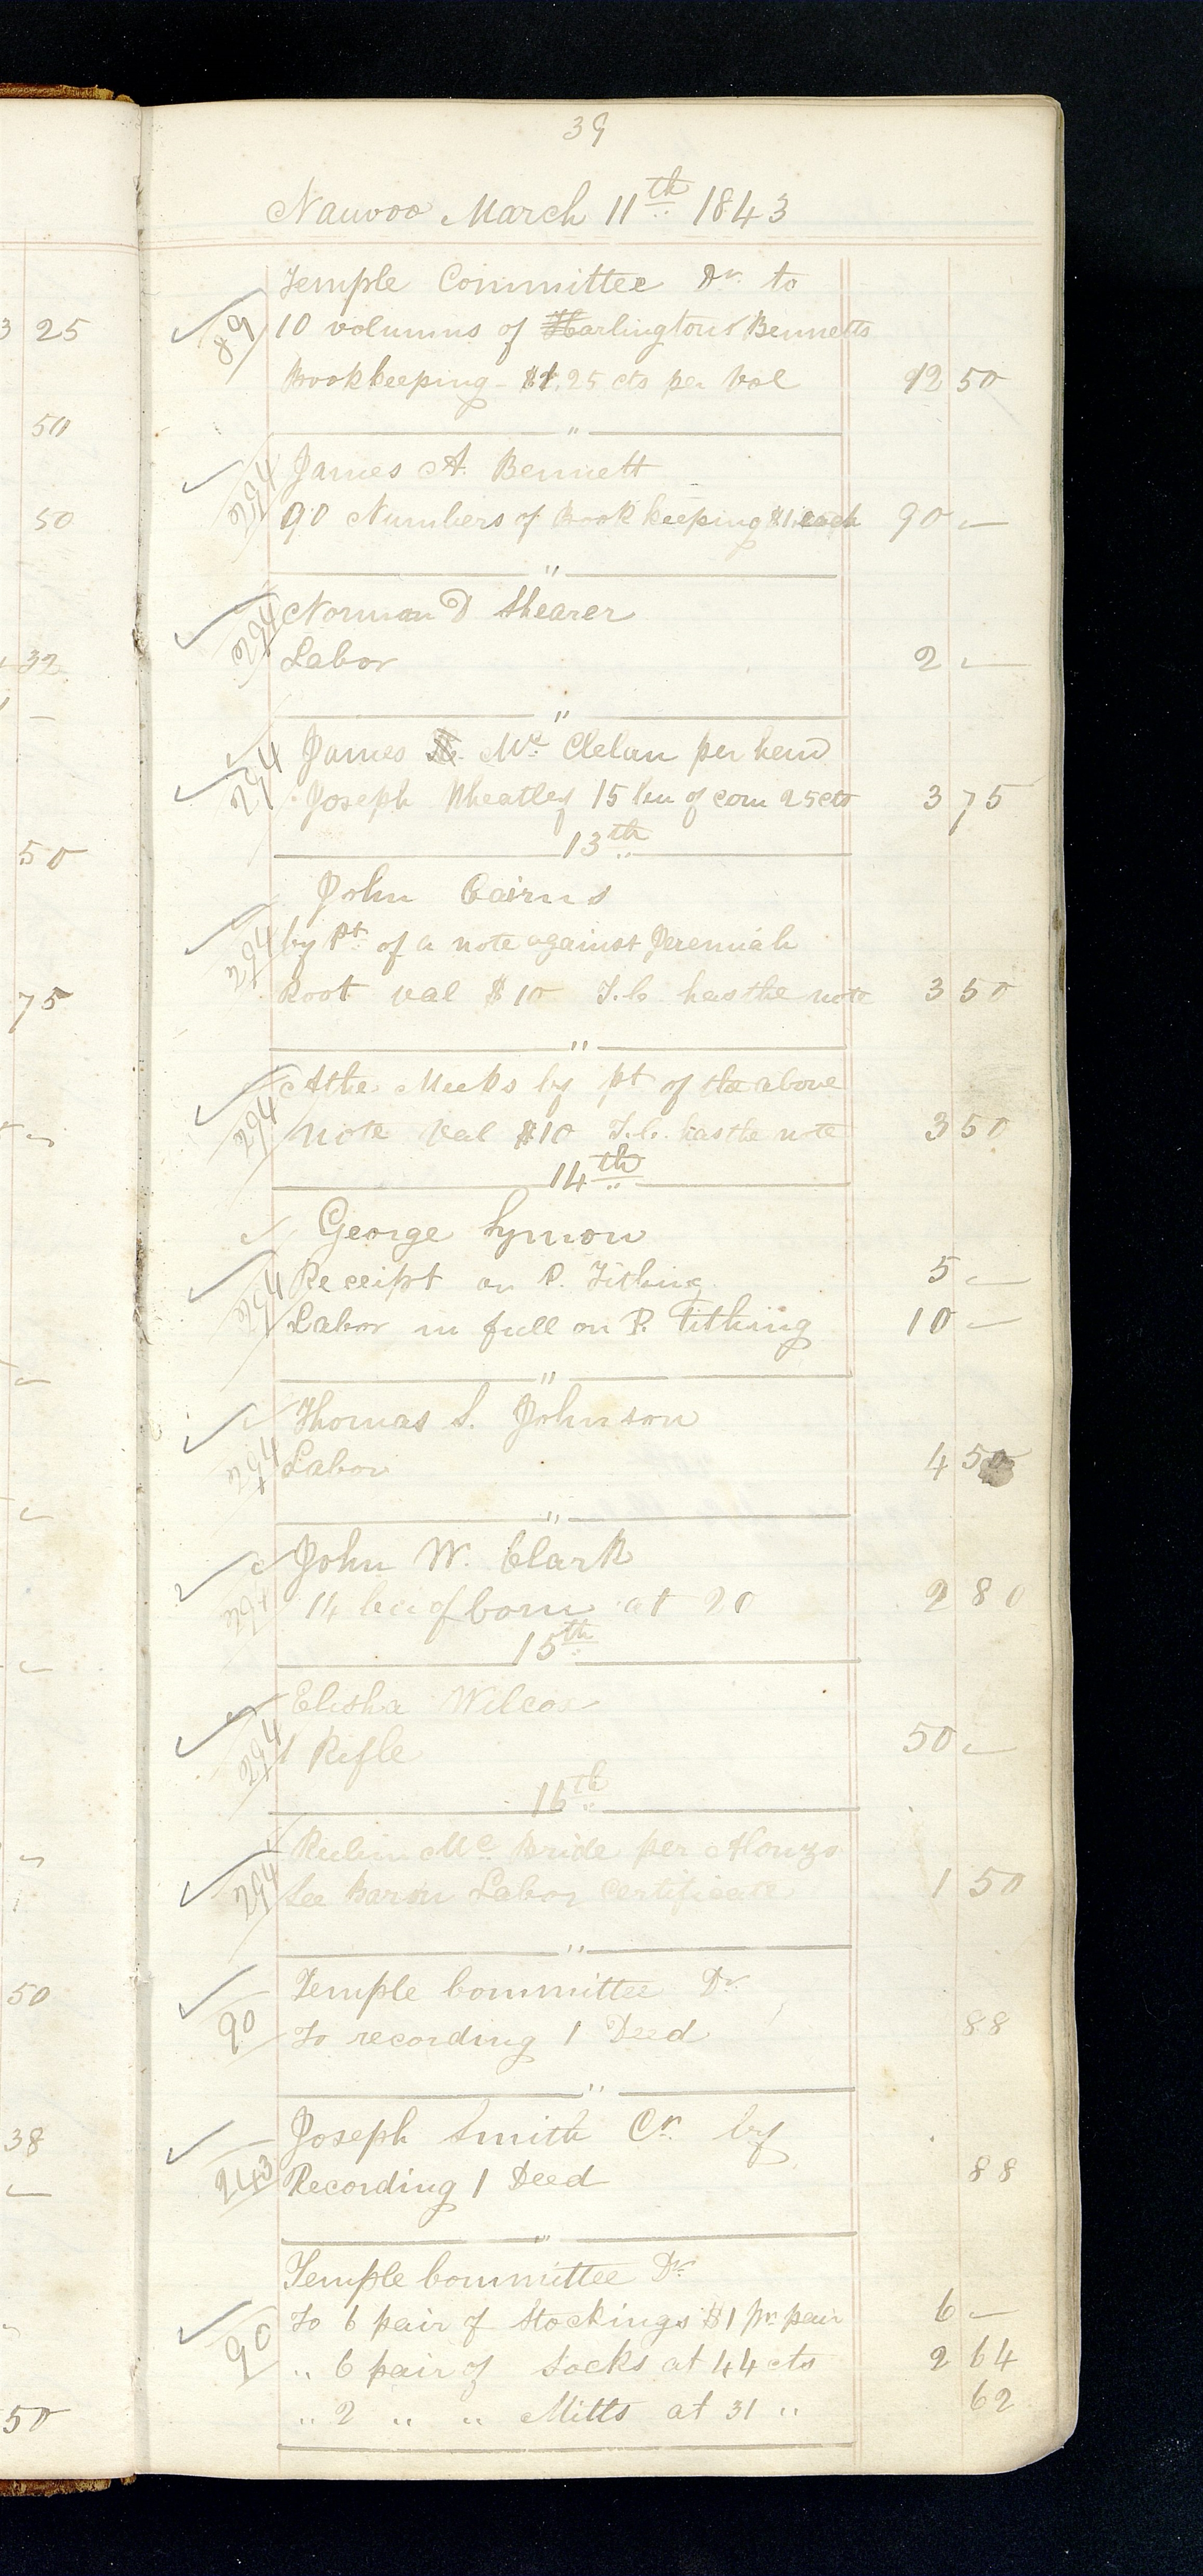 39
Nauvoo March 11th 1843
3 25
50
50
32
50
75
50
38
50
Temple Committee Dr. to
89
10 volumns of Harlingtons Bennetts
Bookkeeping $1.25 cts per Vol 12 50
"
James A. Bennett
294
90 Numbers of Book keeping $1 each 90 —
"
Norman D Shearer
294
Labor 2 —
"
James Mc. Clelan per hend
294
Joseph Wheatley 15 bu of corn 25cts 3 75
13th
John Cairns
294
by Pt. of a note against Jeremiah
Root val $10 T.C. has the note 3 50
"
Meeks by pt of the above
294
note val $10 T.C. has the note 3 50
14th
George Symon
294
Receipt on P. Tithing 5 —
Labor in full on P. Tithing 10 —
"
Thomas S. Johnson
294
Labor 4 50
"
John W. Clark
294
14 bu of Corn at 20 2 80
15th
Elisha Wilcox
294
1 Rifle 50 —
16th
Reubin Mc. Bride per Alonzo
294
Le Baron Labor Certificate 1 50
"
Temple Committee Dr.
90
To recording 1 Deed 88
"
Joseph Smith Cr. by
243
Recording 1 Deed 88
"
Temple Committee Dr.
90
To 6 pair of Stockings $1 pr pair 6 —
" 6 pair of Socks at 44 cts 2 64
" 2 " " Mitts at 31 " 62